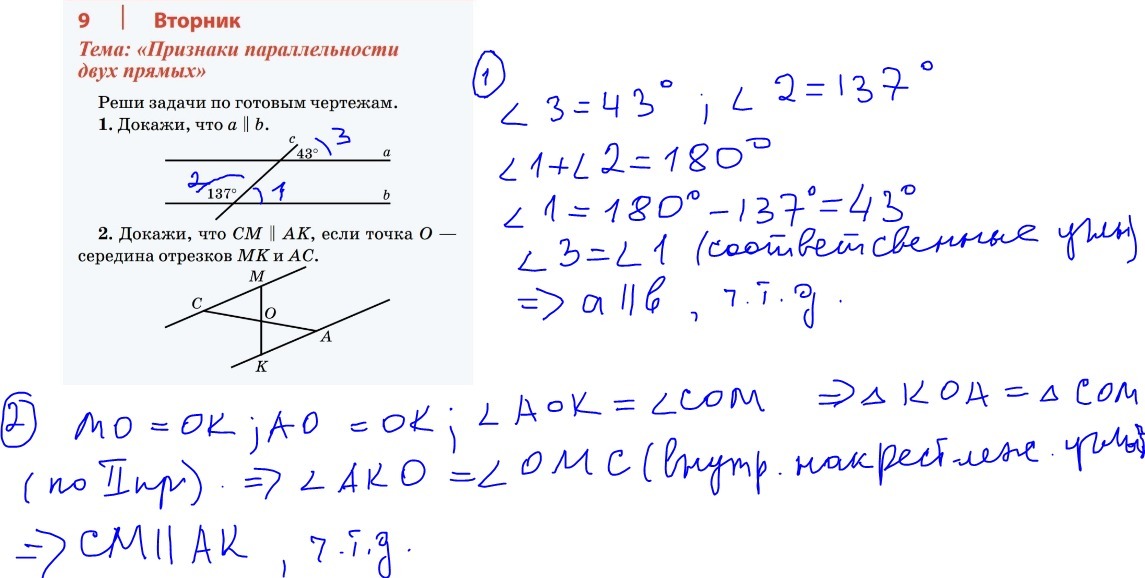 9 | Вторник
Тема: «Признаки параллельности
двух прямых»
Реши задачи по готовым чертежам.
1. Докажи, что a ∥ b.
c
43° 3
a
2
137° 1
b
2. Докажи, что CM ∥ AK, если точка O —
середина отрезков MK и AC.
M
C
O
A
K
1
∠3=43° ; ∠2=137°
∠1+∠2=180°
∠1=180°-137°=43°
∠3=∠1 (соответсвенные углы)
=> a∥b, ч.т.д.
2 MO=OK; AO=OK; ∠AOK=∠COM => △KOA=△COM
(по II пр). => ∠AKO=∠OMC (внутр. накрест леж. углы)
=> CM∥AK, ч.т.д.